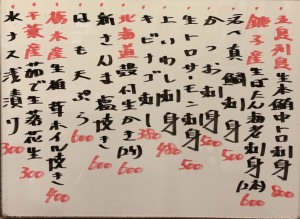 五島列島 生本鮪中トロ刺身 800
銚子産 生ぼたん海老刺身(2本) 600
活〆真鯛刺身 500
かつお刺身 500
生トロサーモン刺身 500
上いわし刺 480
キビナゴ刺 380
北海道殻付生かき(2ケ) 600
新さんま塩焼き 600
はも天ぷら 600
栃木産 生椎茸ホイル焼き 400
千葉産 茹で生落花生 300
水ナス浅漬り 300